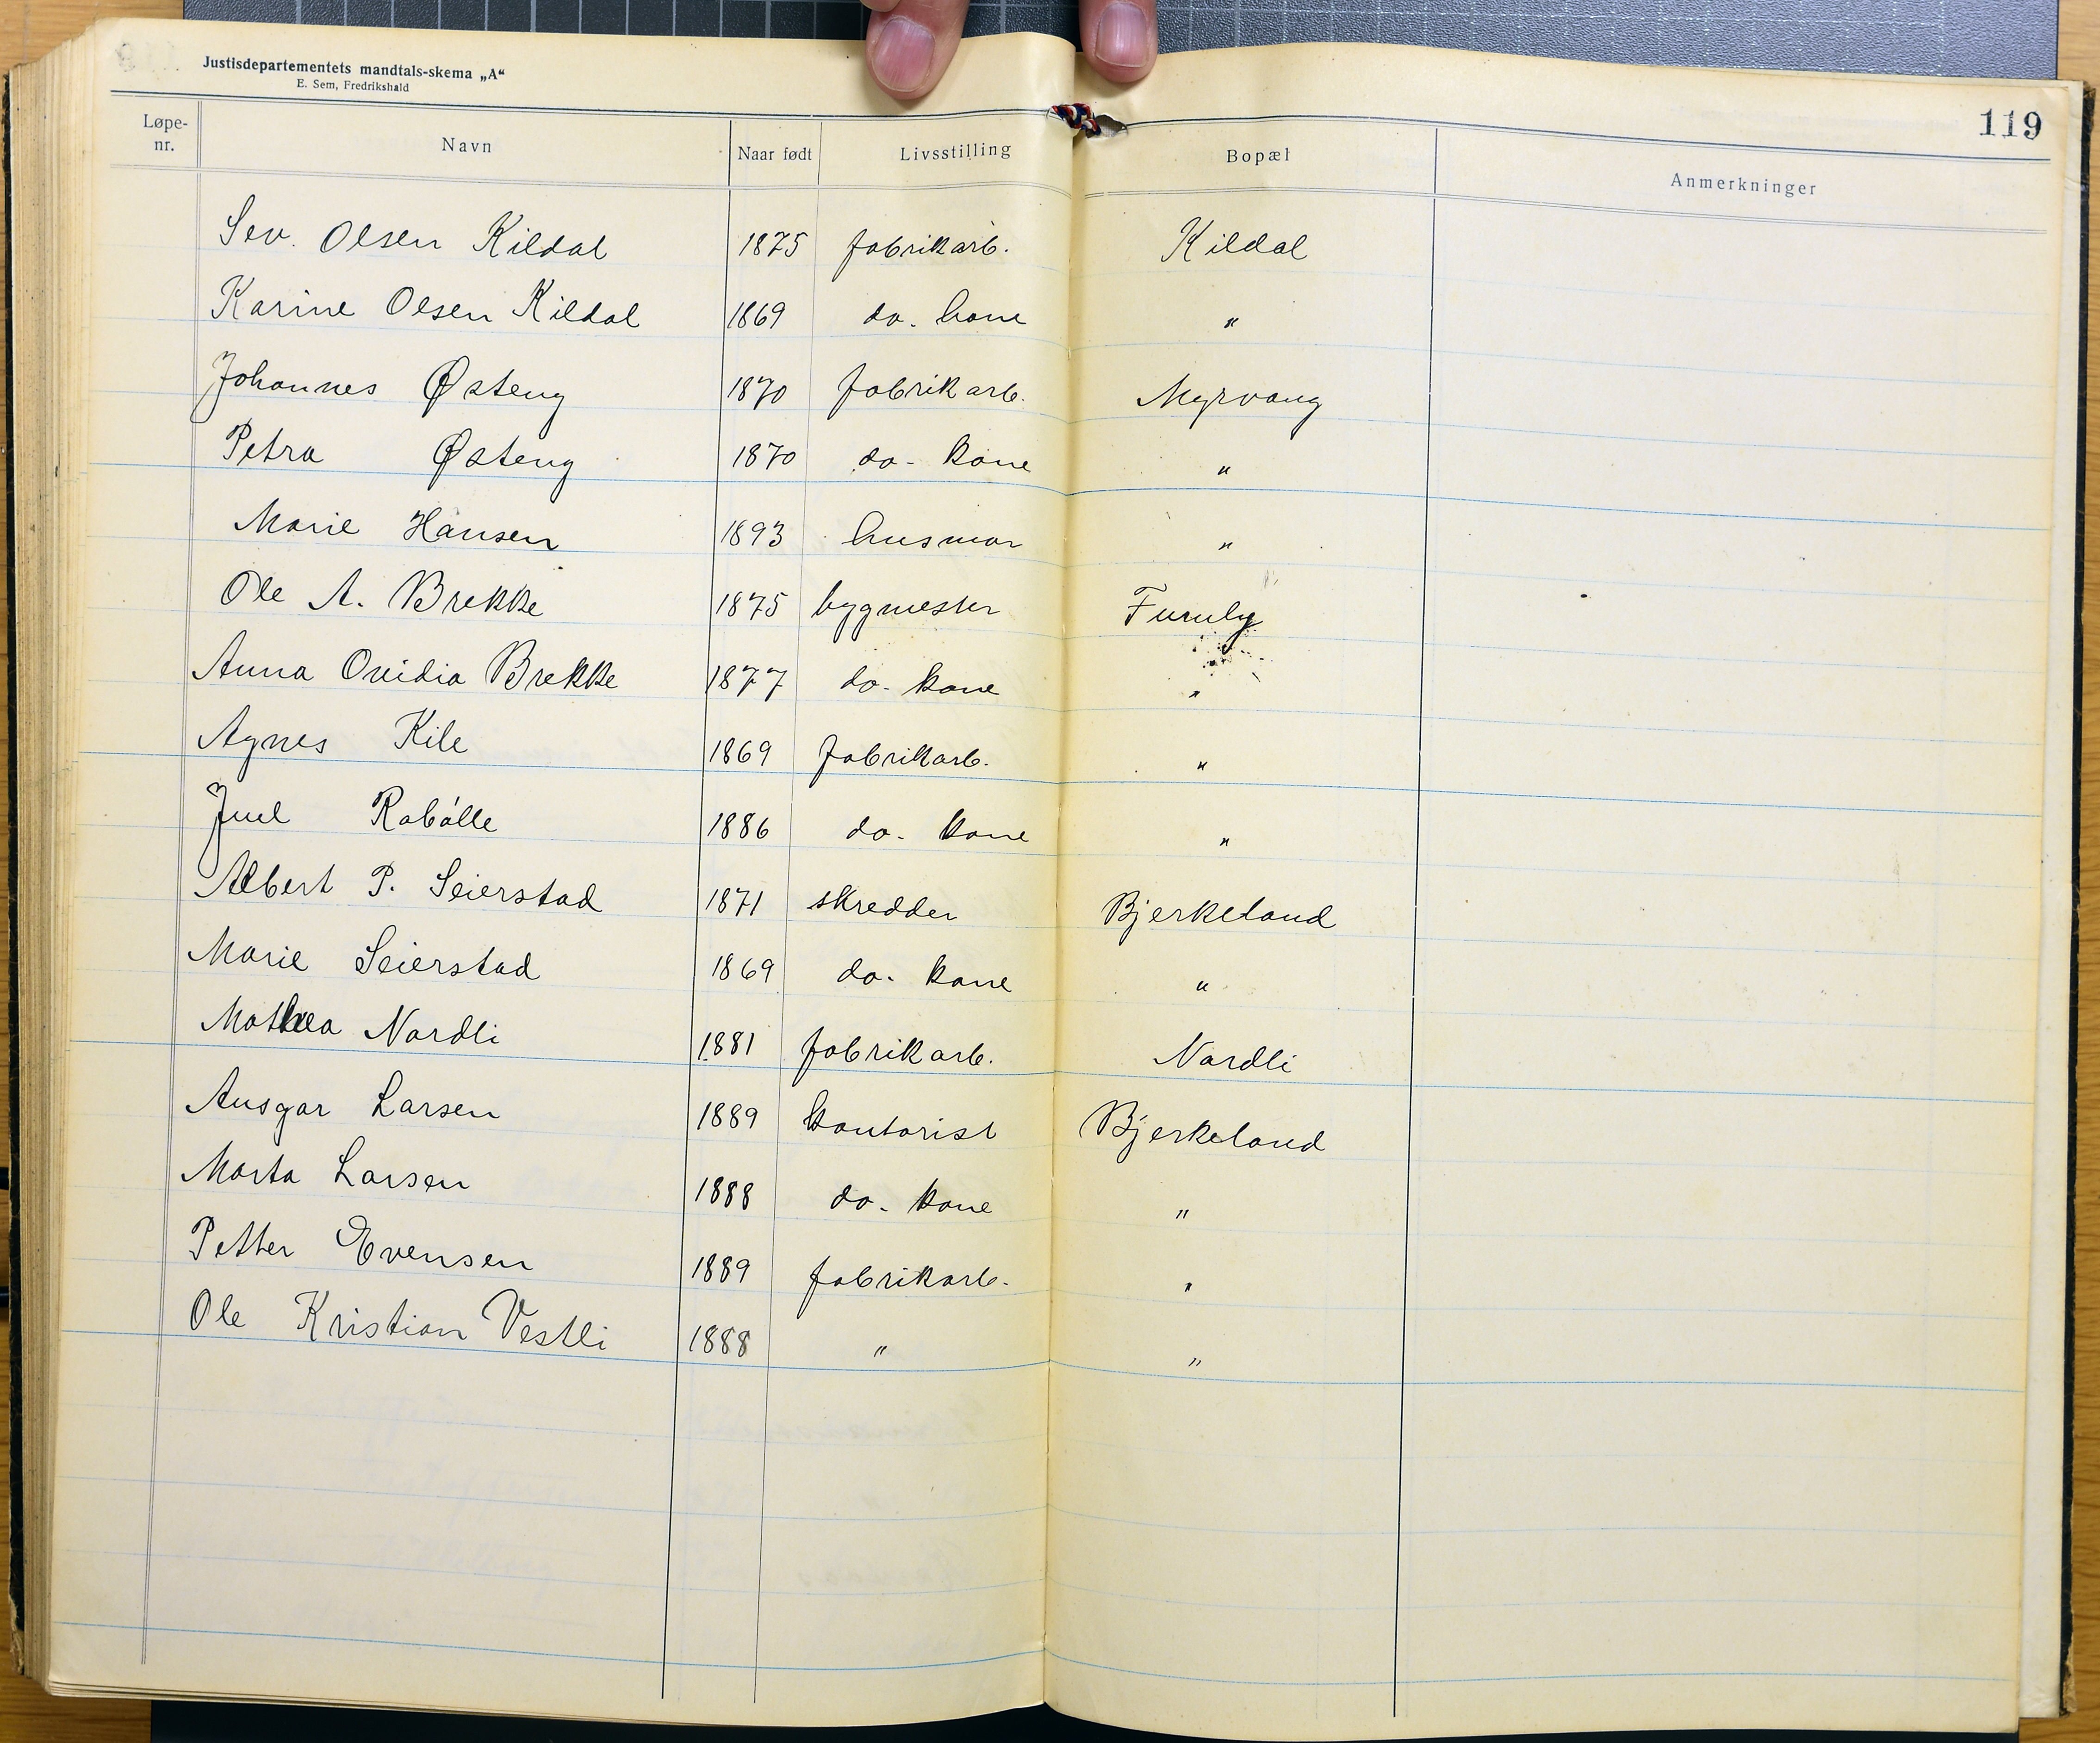 Justisdepartementets mandtals-skema „A“
E. Sem, Fredrikshald
119
Løpe-nr. Navn Naar født Livsstilling Bopæl Anmerkninger
Sev. Olsen Kildal 1875 fabrikarb. Kildal
Karine Olsen Kildal 1869 do. kone "
Johannes Østeng 1870 fabrikarb. Myrvang
Petra Østeng 1870 do- kone "
Marie Hansen 1893 husmor "
Ole A. Brekke 1875 bygmester Furuly
Anna Ovidia Brekke 1877 do- kone "
Agnes Kile 1869 fabrikarb. "
Juel Rabålle 1886 do- kone "
Albert P. Seierstad 1871 skredder Bjerkeland
Marie Seierstad 1869 do- kone "
Mathea Nordli 1881 fabrikarb. Nordli
Ansgar Larsen 1889 kontorist Bjerkeland
Marta Larsen 1888 do- kone "
Petter Evensen 1889 fabrikarb. "
Ole Kristian Vestli 1888 " "